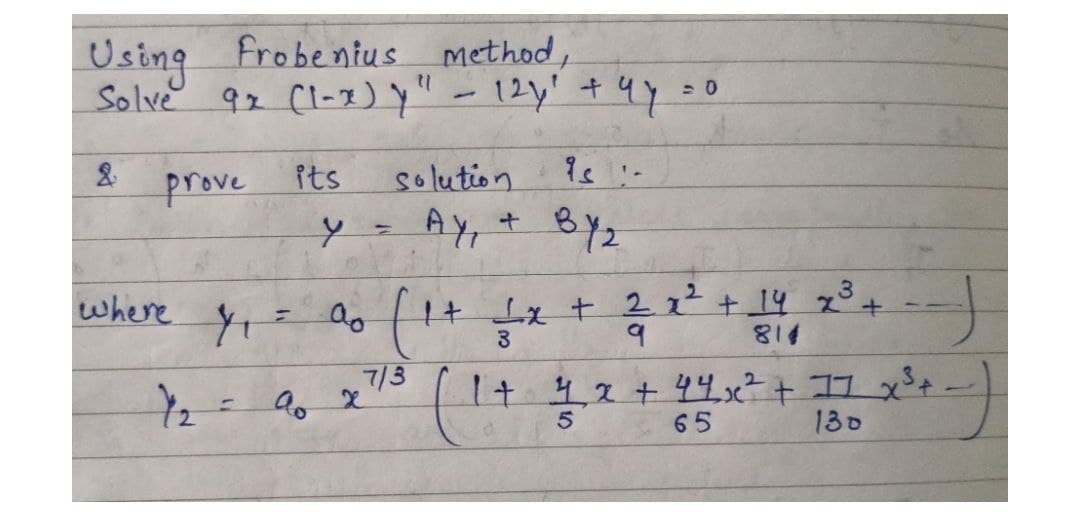 Using Frobenius method,
Solve 9x (1-x) y'' - 12y' + 4y = 0
& prove its solution is :-
y = Ay₁ + By₂
where y₁ = a₀ (1 + 1/3 x + 2/9 x² + 14/81 x³ + ---)
y₂ = a₀ x^7/3 (1 + 4/5 x + 44/65 x² + 77/130 x³ + --)